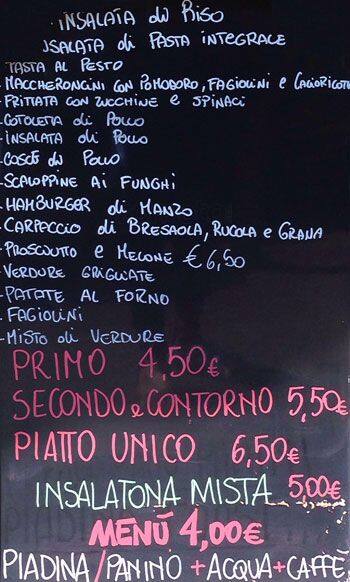 INSALATA di RISO
INSALATA di PASTA INTEGRALE
PASTA AL PESTO
- MACCHERONCINI CON POMODORO, FAGIOLINI e CACIORICOTTA
- FRITTATA CON ZUCCHINE e SPINACI
- COTOLETTA di POLLO
- INSALATA di POLLO
- COSCE di POLLO
- SCALOPPINE AI FUNGHI
- HAMBURGER di MANZO
- CARPACCIO di BRESAOLA, RUCOLA e GRANA
- PROSCIUTTO e MELONE €6,50
- VERDURE GRIGLIATE
- PATATE AL FORNO
- FAGIOLINI
- MISTO di VERDURE
PRIMO 4,50€
SECONDO e CONTORNO 5,50€
PIATTO UNICO 6,50€
INSALATONA MISTA 5,00€
MENÙ 4,00€
PIADINA/PANINO +ACQUA+CAFFÈ